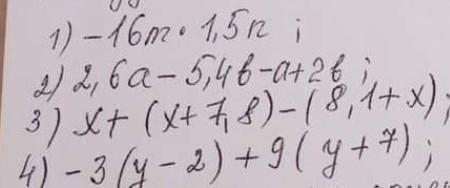 1) -16m · 1,5n ;
2) 2,6a - 5,4b - a + 2b ;
3) x + (x + 7,8) - (8,1 + x) ;
4) -3(y - 2) + 9(y + 7) ;